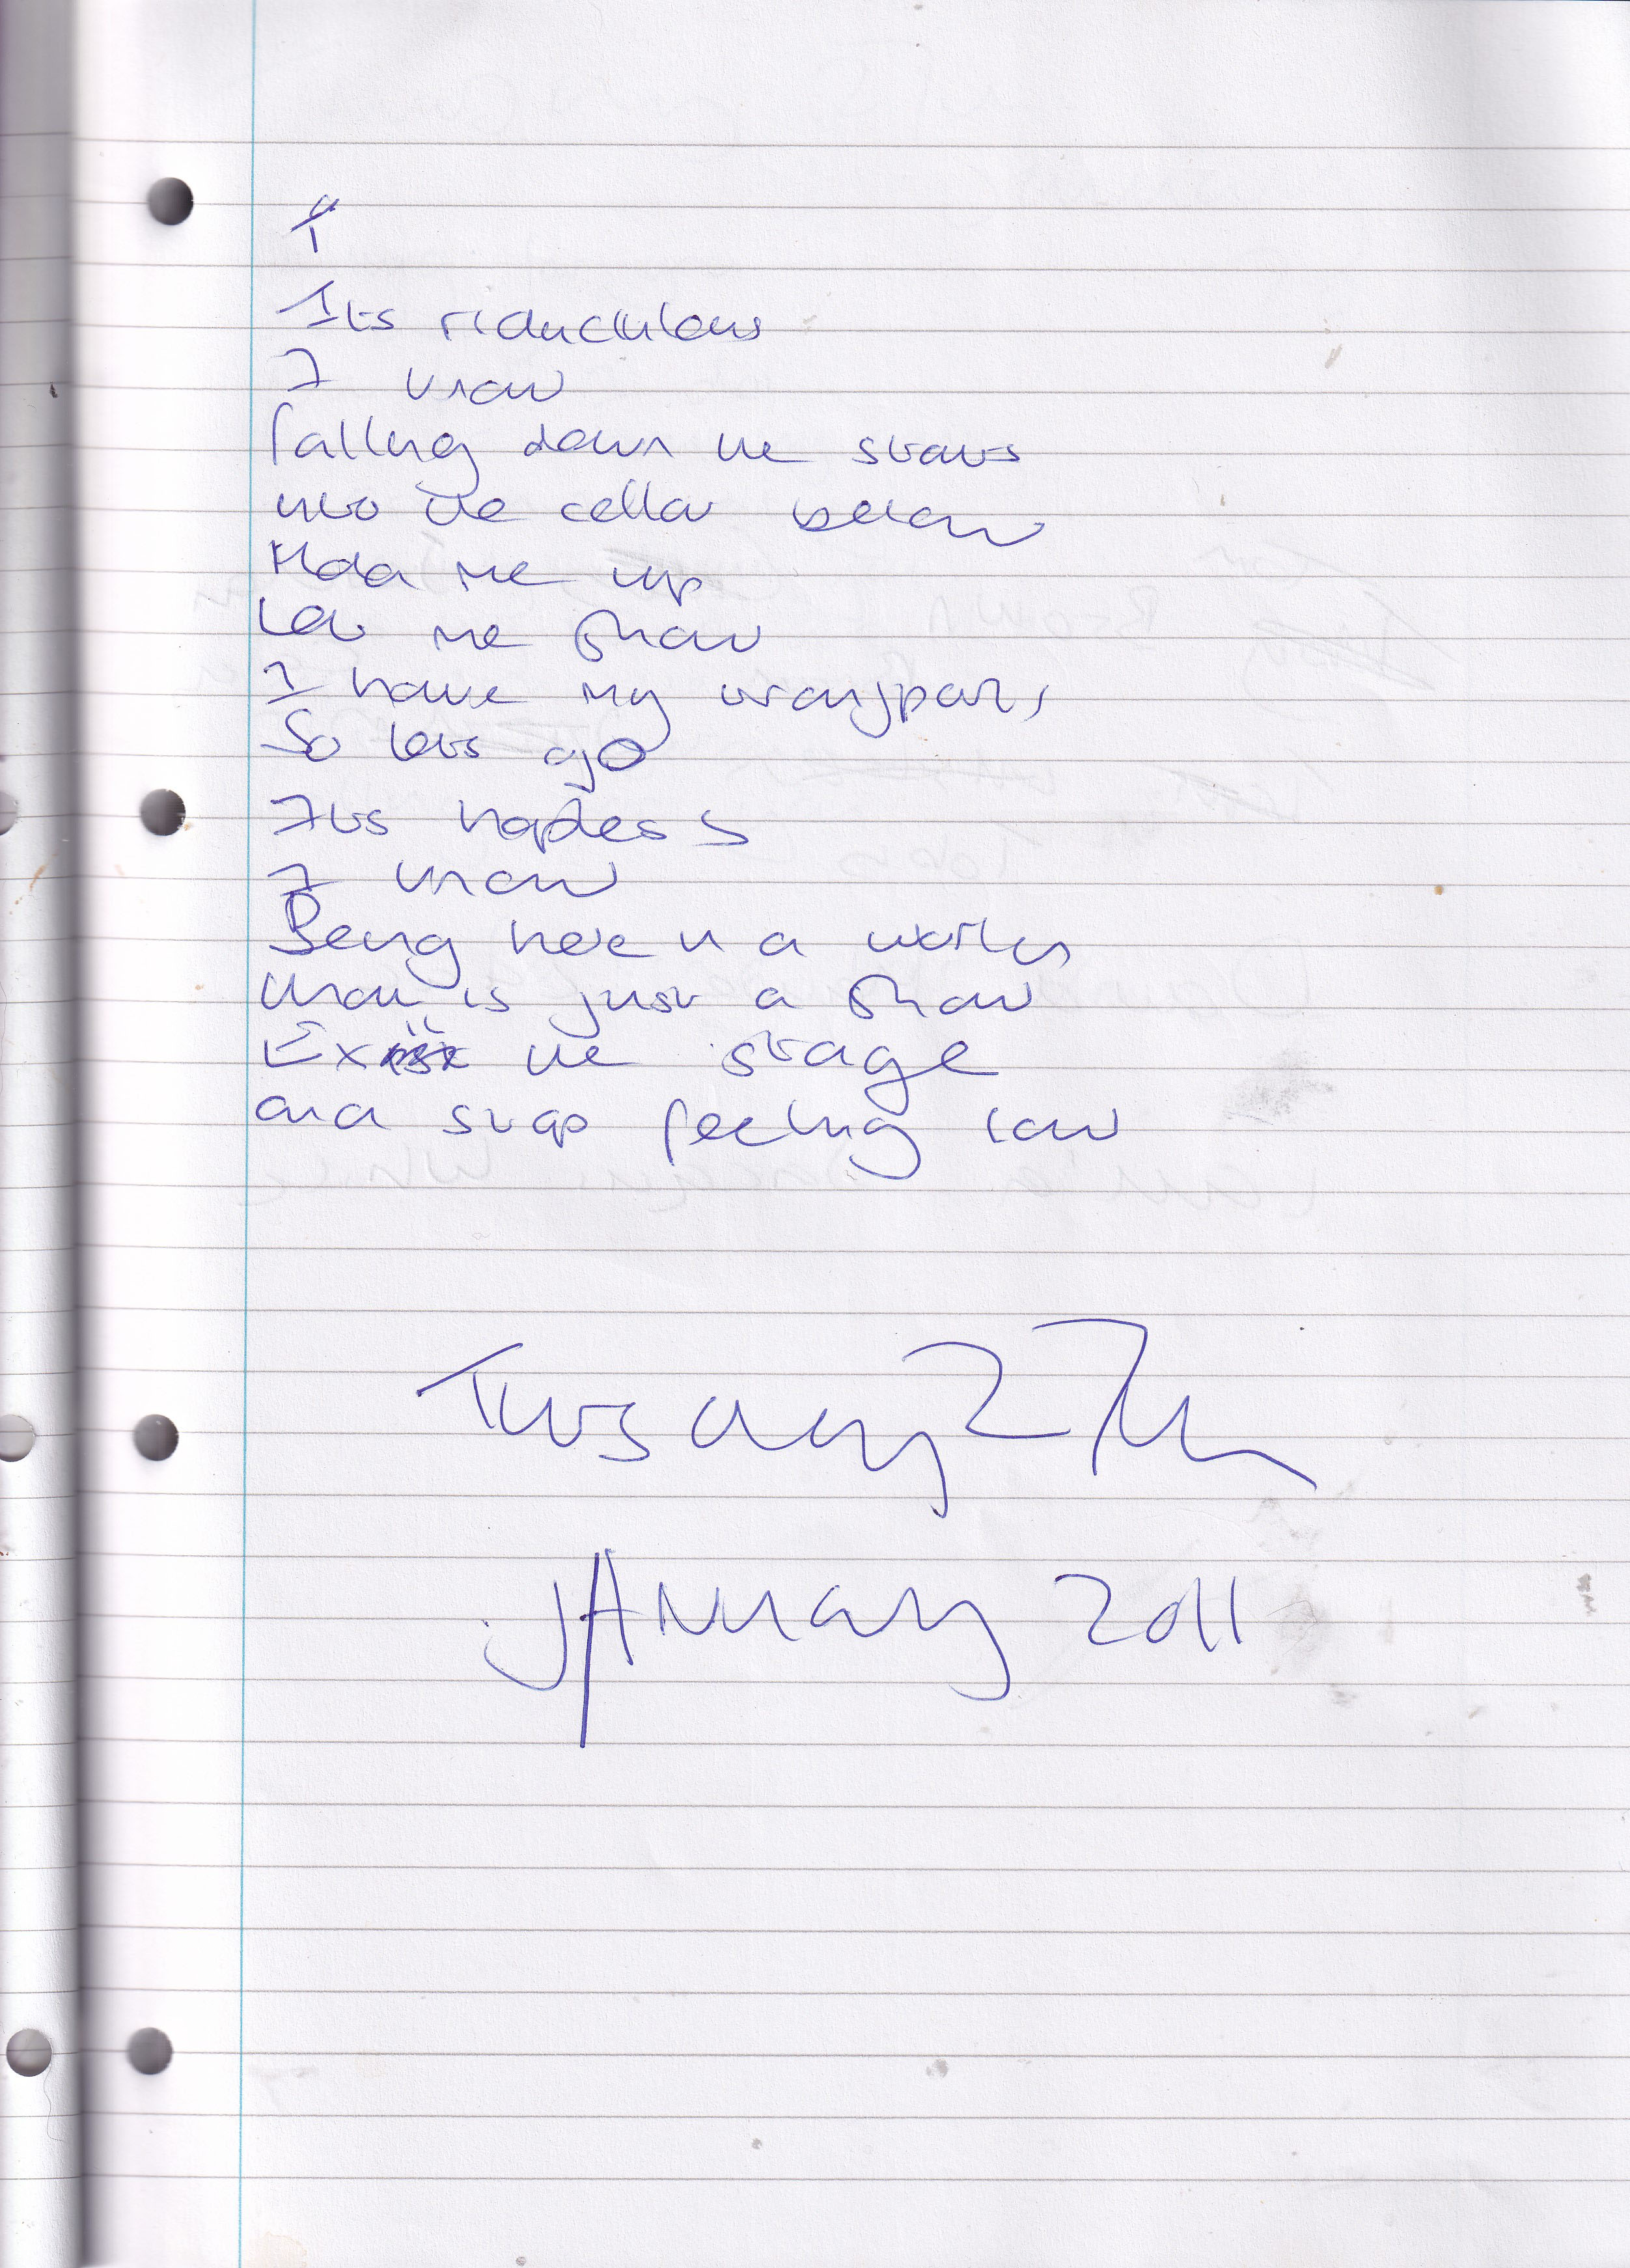 Its riduculous
I know
falling down the stairs
into the cellar below
Hold me up
Let me show
I have my
So lets go
Its hopless
I know
Being here in a world
that is just a show
Exit the stage
and stop feeling low
27th
JAnuary 2011